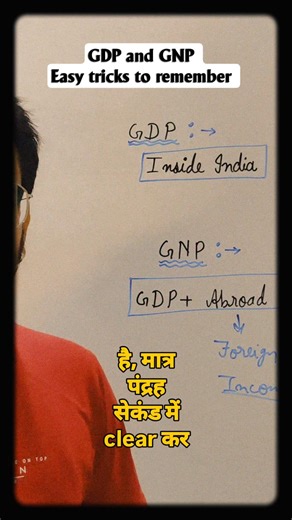 GDP and GNP
Easy tricks to remember
GDP :→
Inside India
GNP :→
GDP + Abroad
Foreign
है, मात्र
पंद्रह
सेकंड में
clear कर
ON TOP
N